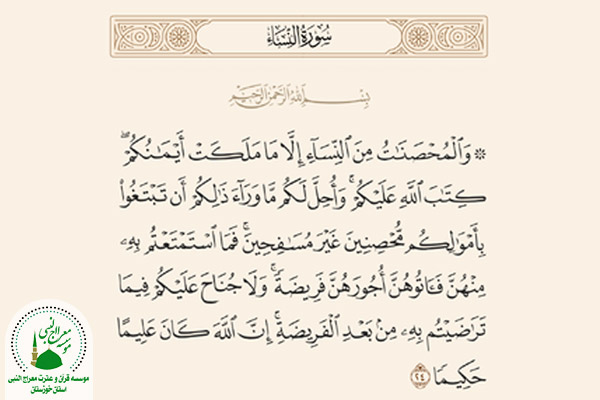 سُورَةُ النِّسَاءِ
بِسْمِ اللَّهِ الرَّحْمَٰنِ الرَّحِيمِ
۞ وَالْمُحْصَنَاتُ مِنَ النِّسَاءِ إِلَّا مَا مَلَكَتْ أَيْمَانُكُمْ ۖ
كِتَابَ اللَّهِ عَلَيْكُمْ ۚ وَأُحِلَّ لَكُم مَّا وَرَاءَ ذَٰلِكُمْ أَن تَبْتَغُوا
بِأَمْوَالِكُم مُّحْصِنِينَ غَيْرَ مُسَافِحِينَ ۚ فَمَا اسْتَمْتَعْتُم بِهِ
مِنْهُنَّ فَآتُوهُنَّ أُجُورَهُنَّ فَرِيضَةً ۚ وَلَا جُنَاحَ عَلَيْكُمْ فِيمَا
تَرَاضَيْتُم بِهِ مِن بَعْدِ الْفَرِيضَةِ ۚ إِنَّ اللَّهَ كَانَ عَلِيمًا
حَكِيمًا ۝٢٤
موسسه معراج النبی
موسسه قرآن و عترت معراج النبی
استان خوزستان